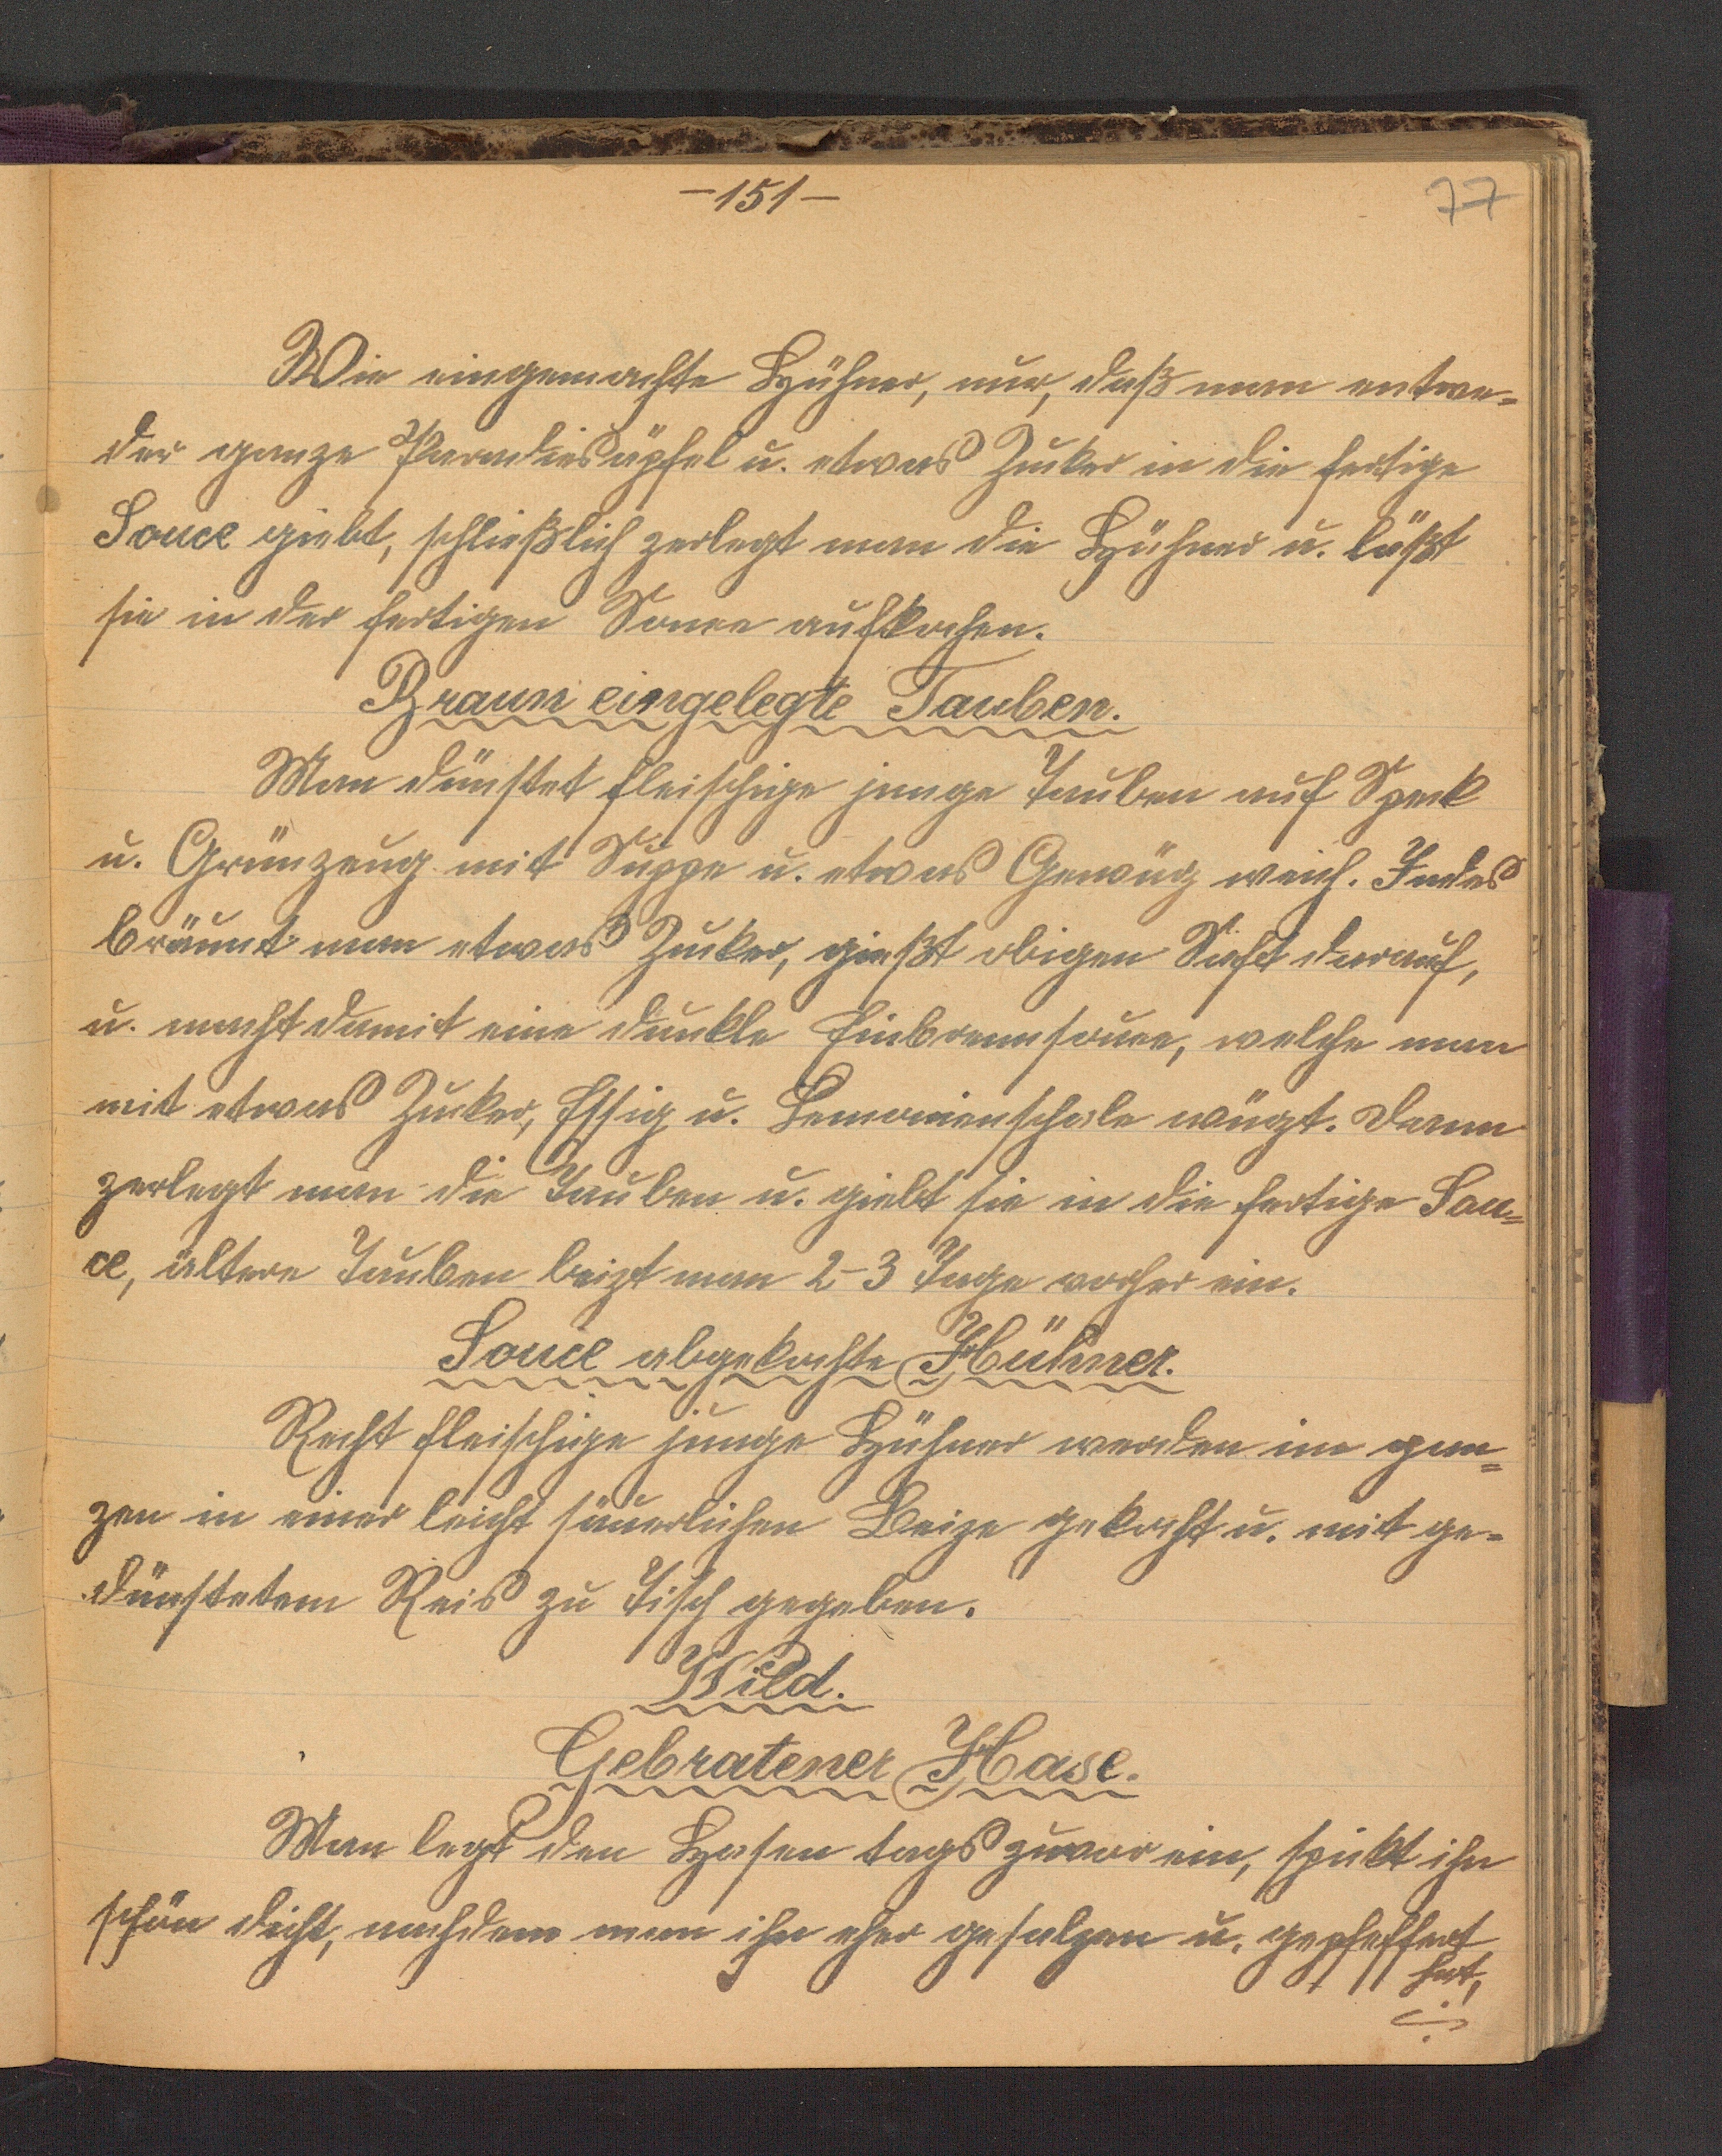 -151-
77
Wie eingemachte Hühner, nur, daß man entwe=
der ganze Paradiesäpfel u. etwas Zucker in die fertige
Souce giebt, schließlich zerlegt man die Hühner u. läßt
sie in der fertigen Souce aufkochen.
Braun eingelegte Tauben.
Man dünstet fleischige junge Tauben auf Speck
u. Grünzeug mit Suppe u. etwas Gewürz weich. Indes
bräunt man etwas Zucker, gießt obigen Saft darauf,
u. macht damit eine dunkle Einbrennsouce, welche man
mit etwas Zucker, Essig u. Lemonienschale würzt. Dann
zerlegt man die Tauben u. giebt sie in die fertige Sou=
ce, ältere Tauben beizt man 2-3 Tage vorher ein.
Souce abgekochte Hühner.
Recht fleischige junge Hühner werden im gan=
zen in einer leicht säuerlichen Beize gekocht u. mit ge=
dünstetem Reis zu Tisch gegeben.
Wild.
Gebratener Hase.
Man legt den Hasen tags zuvor ein, spickt ihn
schön dicht, nachdem man ihn eher gesalzen u. gepfeffert
hat,